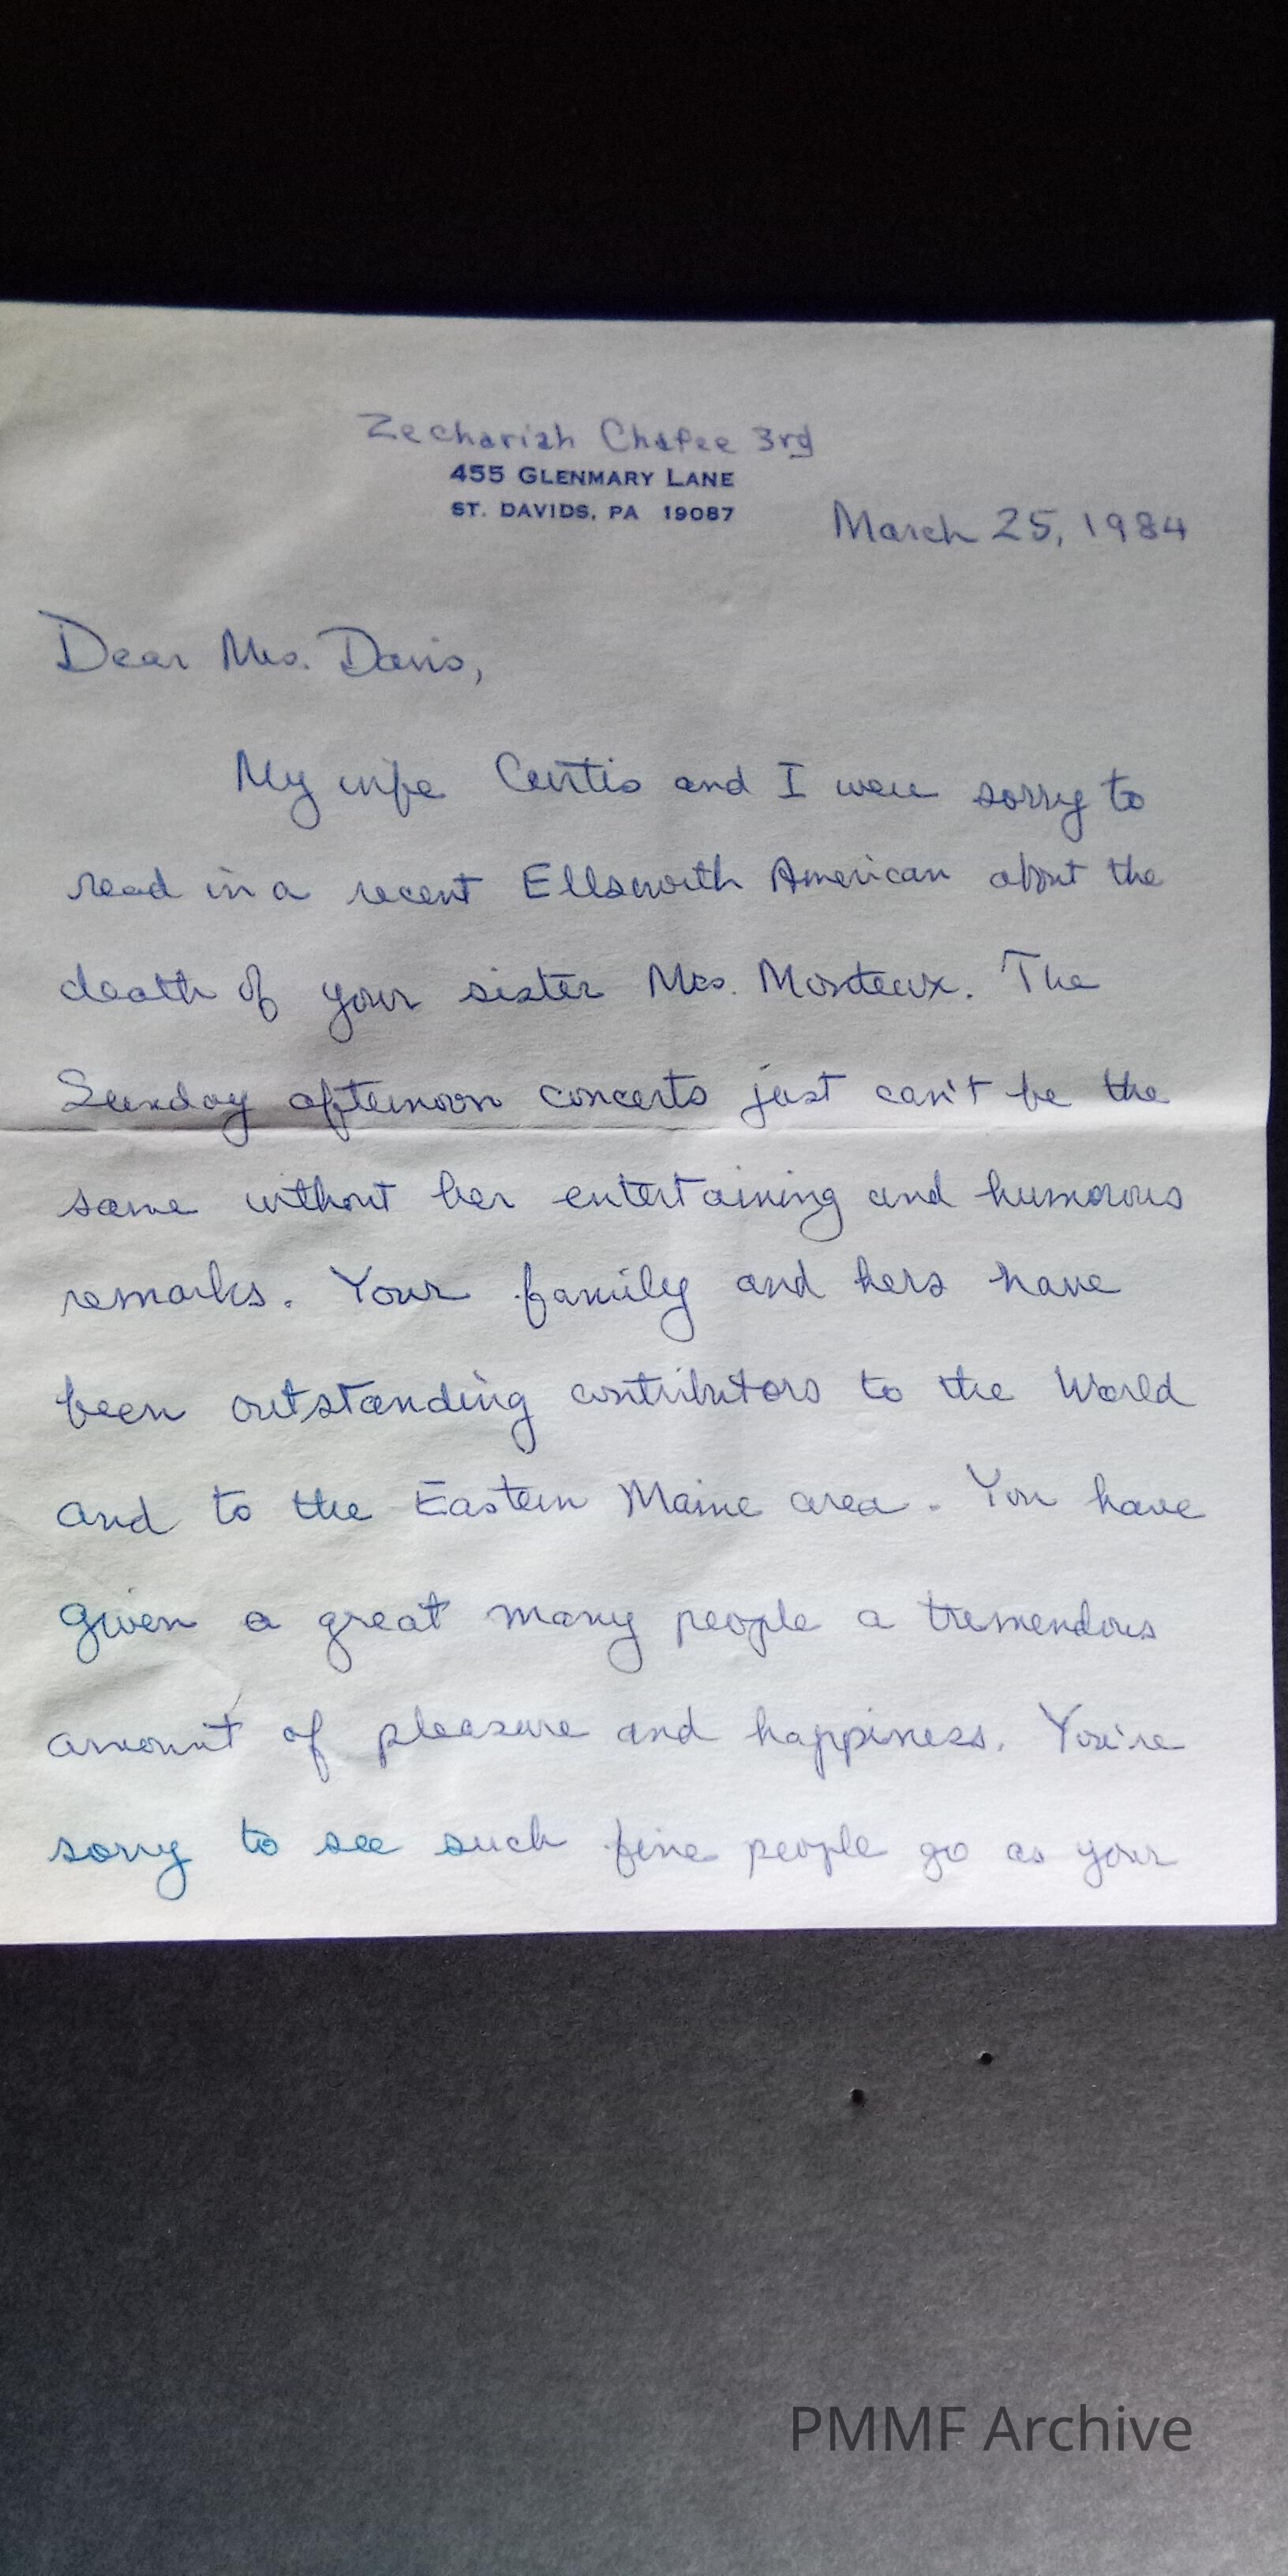 Zechariah Chafee 3rd
455 GLENMARY LANE
ST. DAVIDS, PA 19087
March 25, 1984
Dear Mrs. Davis,
My wife Curtis and I were sorry to
read in a recent Ellsworth American about the
death of your sister Mrs. Monteux. The
Sunday afternoon concerts just can't be the
same without her entertaining and humorous
remarks. Your family and hers have
been outstanding contributors to the World
and to the Eastern Maine area. You have
given a great many people a tremendous
amount of pleasure and happiness. You're
sorry to see such fine people go as your
PMMF Archive